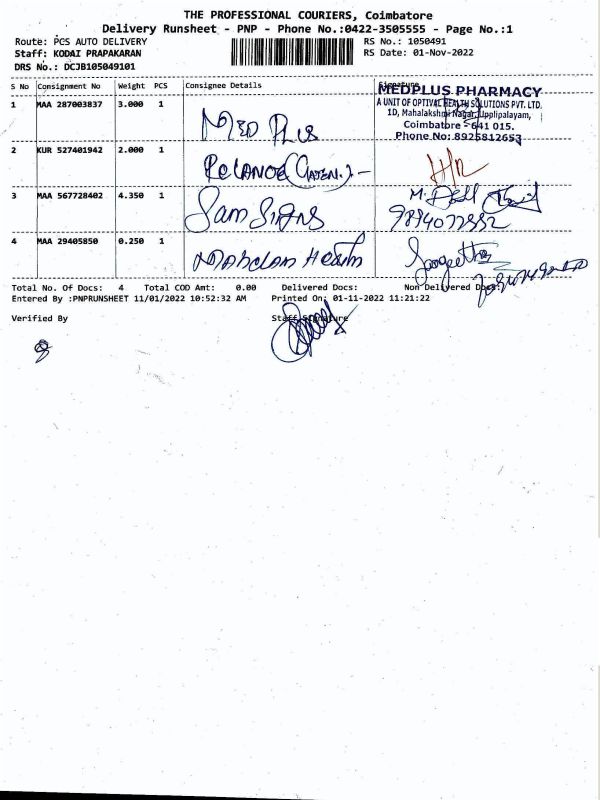 THE PROFESSIONAL COURIERS, Coimbatore
Delivery Runsheet - PNP - Phone No.:0422-3505555 - Page No.:1
Route: PCS AUTO DELIVERY RS No.: 1050491
Staff: KODAI PRAPAKARAN RS Date: 01-Nov-2022
DRS No.: DCJB105049101
S No Consignment No Weight PCS Consignee Details Signature
MEDPLUS PHARMACY
1 MAA 287003837 3.000 1 MED PLUS
A UNIT OF OPTIVAL HEALTH SOLUTIONS PVT. LTD.
1D, Mahalakshmi Nagar, Upplipalayam,
Coimbatore - 641 015.
Phone No: 8925812653
2 KUR 527401942 2.000 1
3 MAA 567728402 4.350 1 Sam Signs
4 MAA 29405850 0.250 1 Sangeetha
Total No. Of Docs: 4 Total COD Amt: 0.00 Delivered Docs: Non Delivered Docs:
Entered By :PNPRUNSHEET 11/01/2022 10:52:32 AM Printed On: 01-11-2022 11:21:22
Verified By Staff Signature